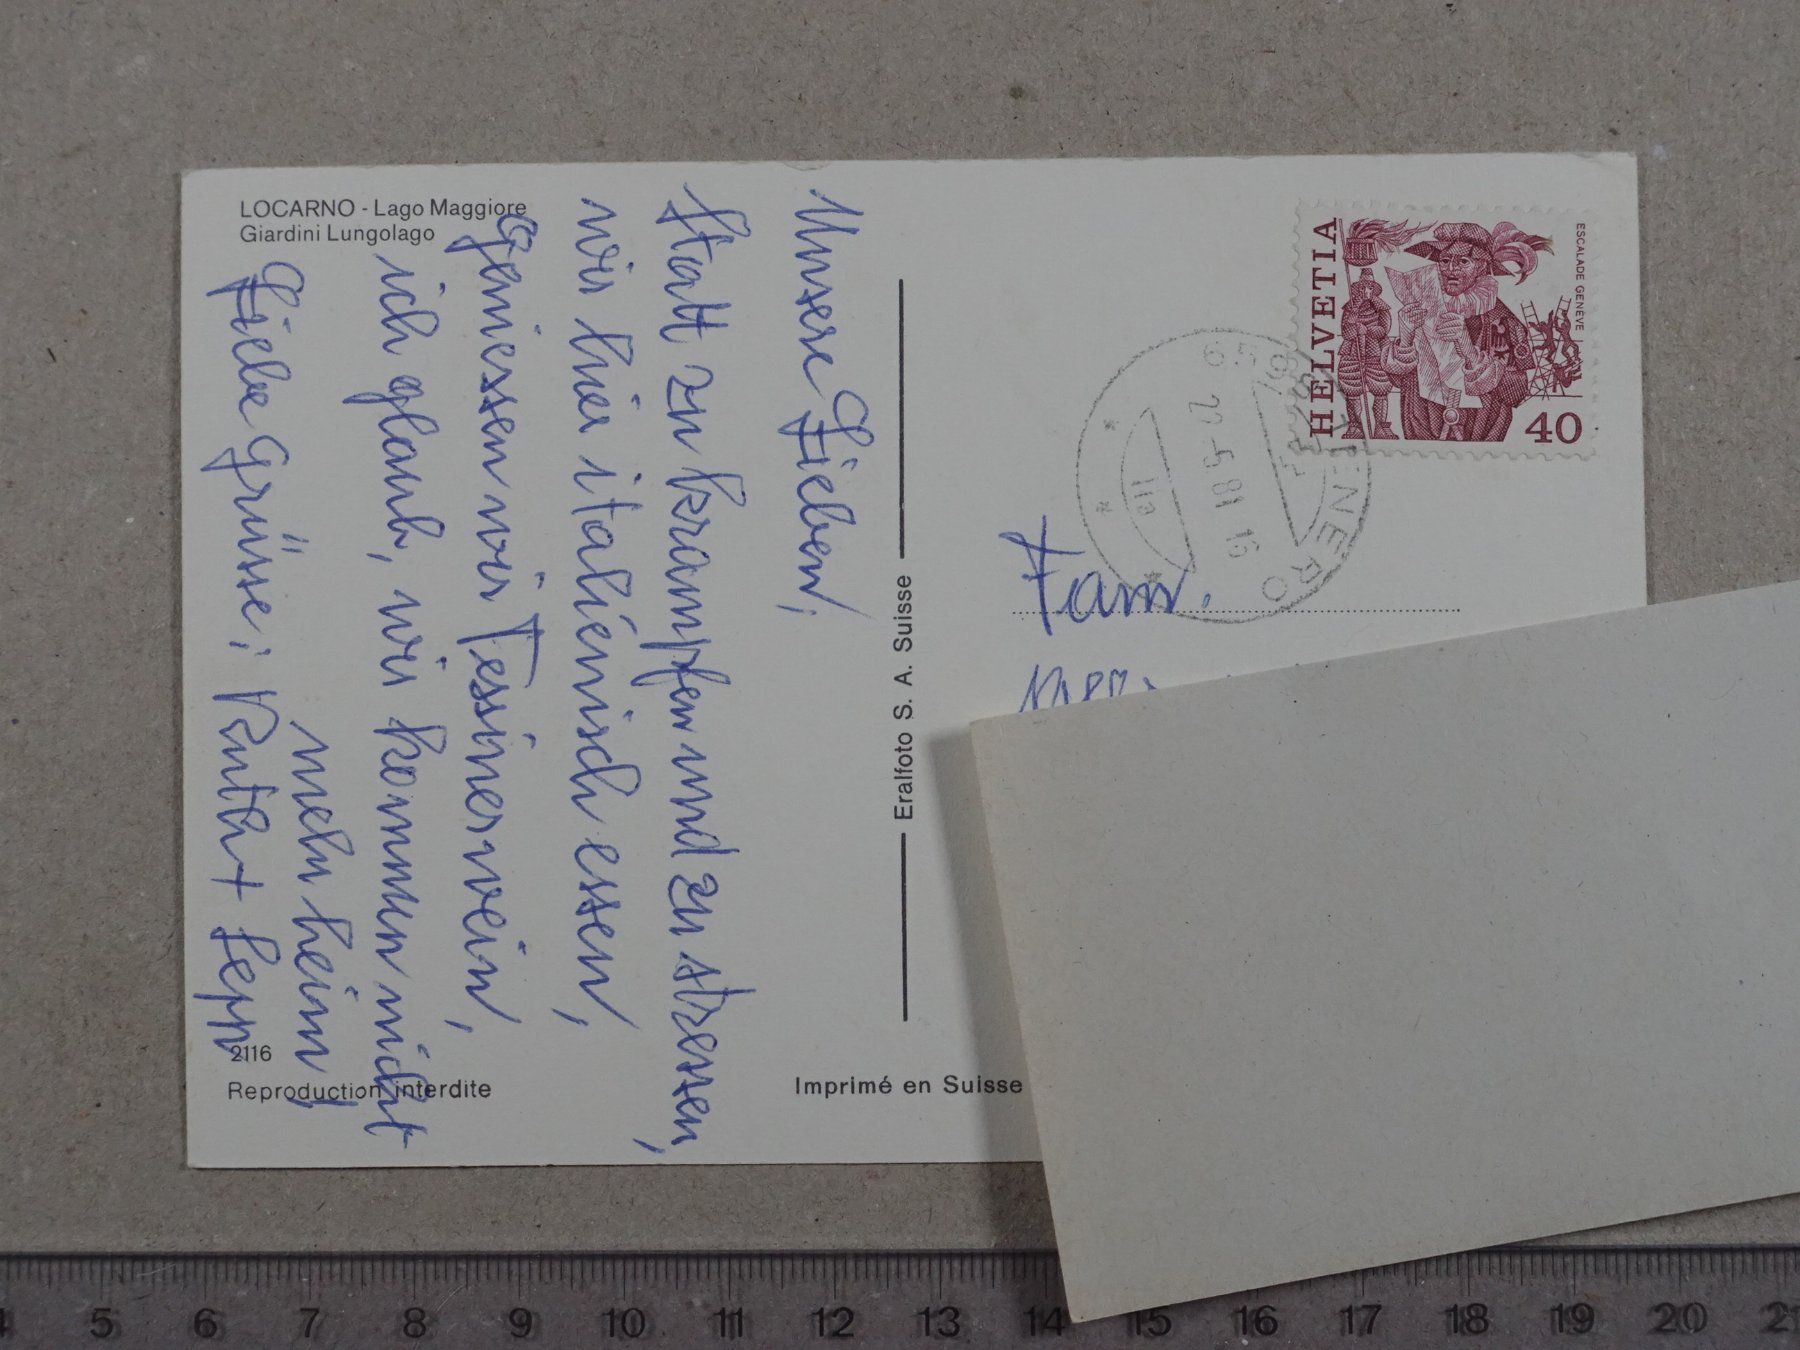 LOCARNO - Lago Maggiore
Giardini Lungolago
Unsere Lieben,
statt zu krampfen und zu stressen,
wir hier italiénisch essen,
geniessen wir Tessinerwein,
ich glaub, wir kommen nicht
mehr heim!
Liebe Grüsse; Ruth + Sepp
2116
Reproduction interdite
Eralfoto S. A. Suisse
Imprimé en Suisse
HELVETIA
ESCALADE GENÈVE
40
6598 TENERO
-5.81.16
Fam.